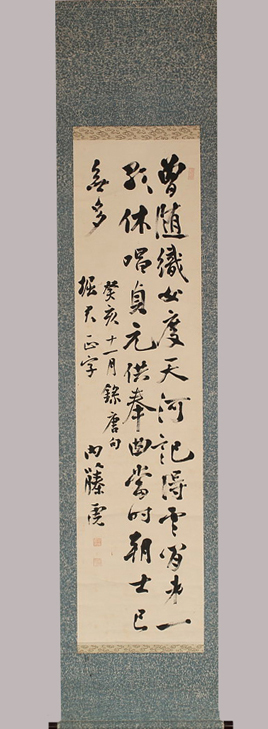 曽随織女度天河記得雲間第一
歌休唱貞元供奉曲當時朝士已
無多
癸亥十一月録唐句
堀君正字
内藤虎